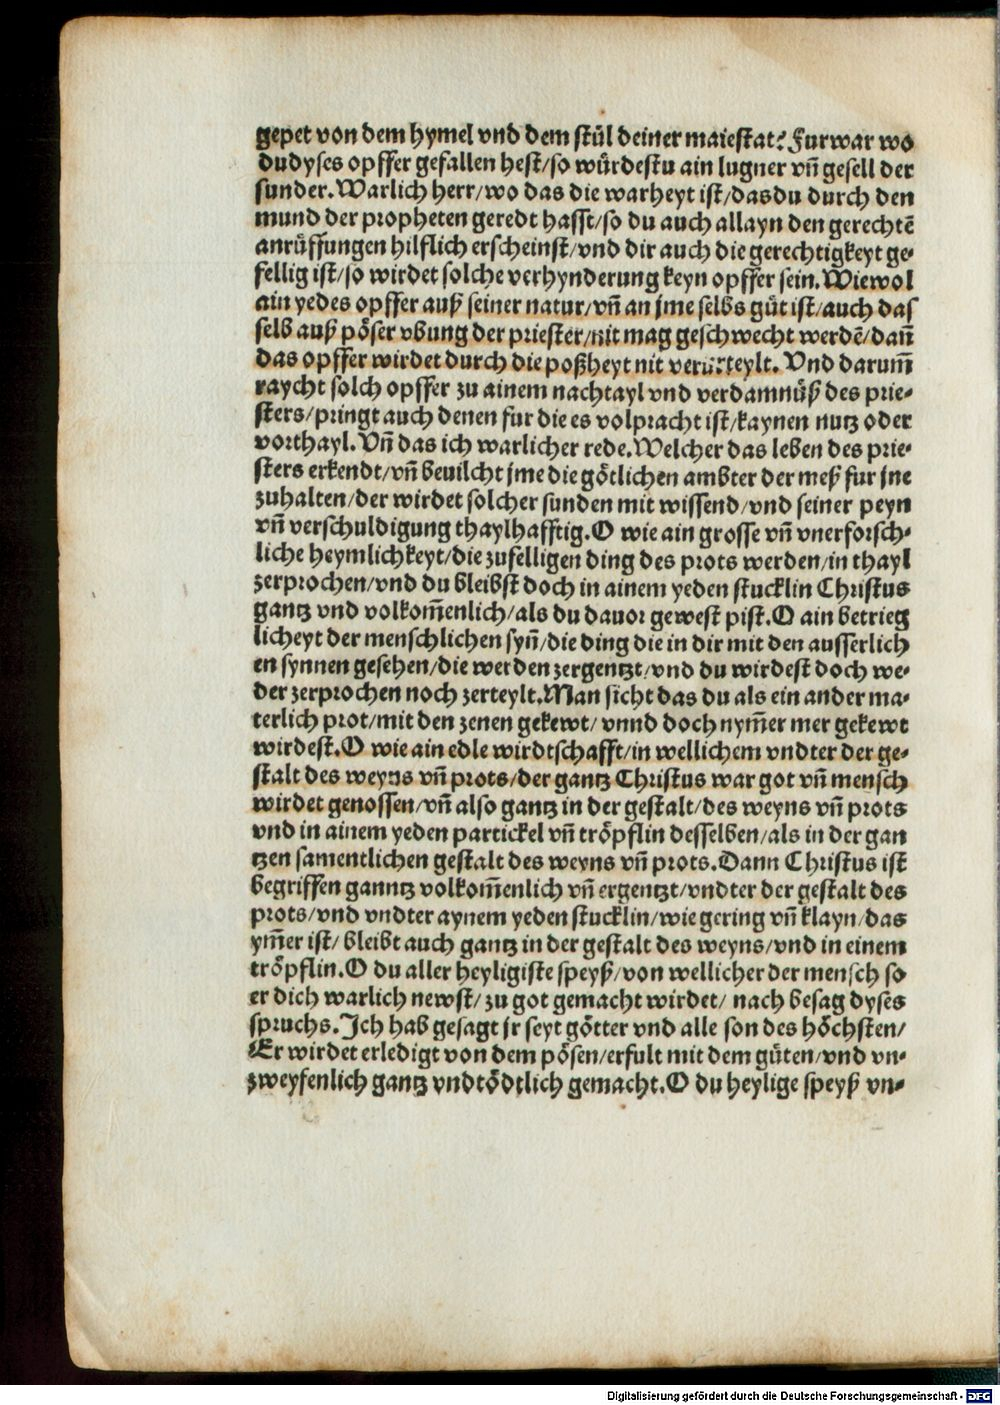 gepet von dem hymel vnd dem stůl deiner maiestat? Furwar wo
dudyses opffer gefallen hest/so würdestu ain lugner vn̄ gesell der
sunder. Warlich herr/wo das die warheyt ist/dasdu durch den
mund der propheten geredt hasst/so du auch allayn den gerechtē
anrüffungen hilflich erscheinst/vnd dir auch die gerechtigkeyt ge-
fellig ist/so wirdet solche verhynderung keyn opffer sein. Wiewol
ain yedes opffer auß seiner natur/vn̄ an jme selbs gůt ist/auch das
selb auß pöser vbung der priester/nit mag geschwecht werdē/dan̄
das opffer wirdet durch die poßheyt nit verurteylt. Vnd darum̄
raycht solch opffer zu ainem nachtayl vnd verdamnüß des prie-
sters/pringt auch denen fur die es volpracht ist/kaynen nutz oder
vorthayl. Vn̄ das ich warlicher rede. Welcher das leben des prie-
sters erkendt/vn̄ beuilcht jme die götlichen ambter der meß fur jne
zuhalten/der wirdet solcher sunden mit wissend/vnd seiner peyn
vn̄ verschuldigung thaylhafftig. O wie ain grosse vn̄ vnerforsch-
liche heymlichkeyt/die zufelligen ding des prots werden/in thayl
zerprochen/vnd du bleibst doch in ainem yeden stucklin Christus
gantz vnd volkom̄enlich/als du dauor gewest pist. O ain betrieg
licheyt der menschlichen syn̄/die ding die in dir mit den ausserlich
en synnen gesehen/die werden zergentzt/vnd du wirdest doch we-
der zerprochen noch zerteylt. Man sicht das du als ein ander ma-
terlich prot/mit den zenen gekewt/ vnnd doch nym̄er mer gekewt
wirdest. O wie ain edle wirdtschafft/in wellichem vndter der ge-
stalt des weyns vn̄ prots/der gantz Christus war got vn̄ mensch
wirdet genossen/vn̄ also gantz in der gestalt/des weyns vn̄ prots
vnd in ainem yeden partickel vn̄ tröpflin desselben/als in der gan
tzen samentlichen gestalt des weyns vn̄ prots. Dann Christus ist
begriffen ganntz volkom̄enlich vn̄ ergentzt/vndter der gestalt des
prots/vnd vndter aynem yeden stucklin/wie gering vn̄ klayn/das
ym̄er ist/ bleibt auch gantz in der gestalt des weyns/vnd in einem
tröpflin. O du aller heyligiste speyß/von wellicher der mensch so
er dich warlich newst/ zu got gemacht wirdet/ nach besag dyses
spruchs. Ich hab gesagt jr seyt götter vnd alle son des höchsten/
Er wirdet erledigt von dem pösen/erfult mit dem gůten/vnd vn-
zweyfenlich gantz vndtödtlich gemacht. O du heylige speyß vn-
Digitalisierung gefördert durch die Deutsche Forschungsgemeinschaft - DFG